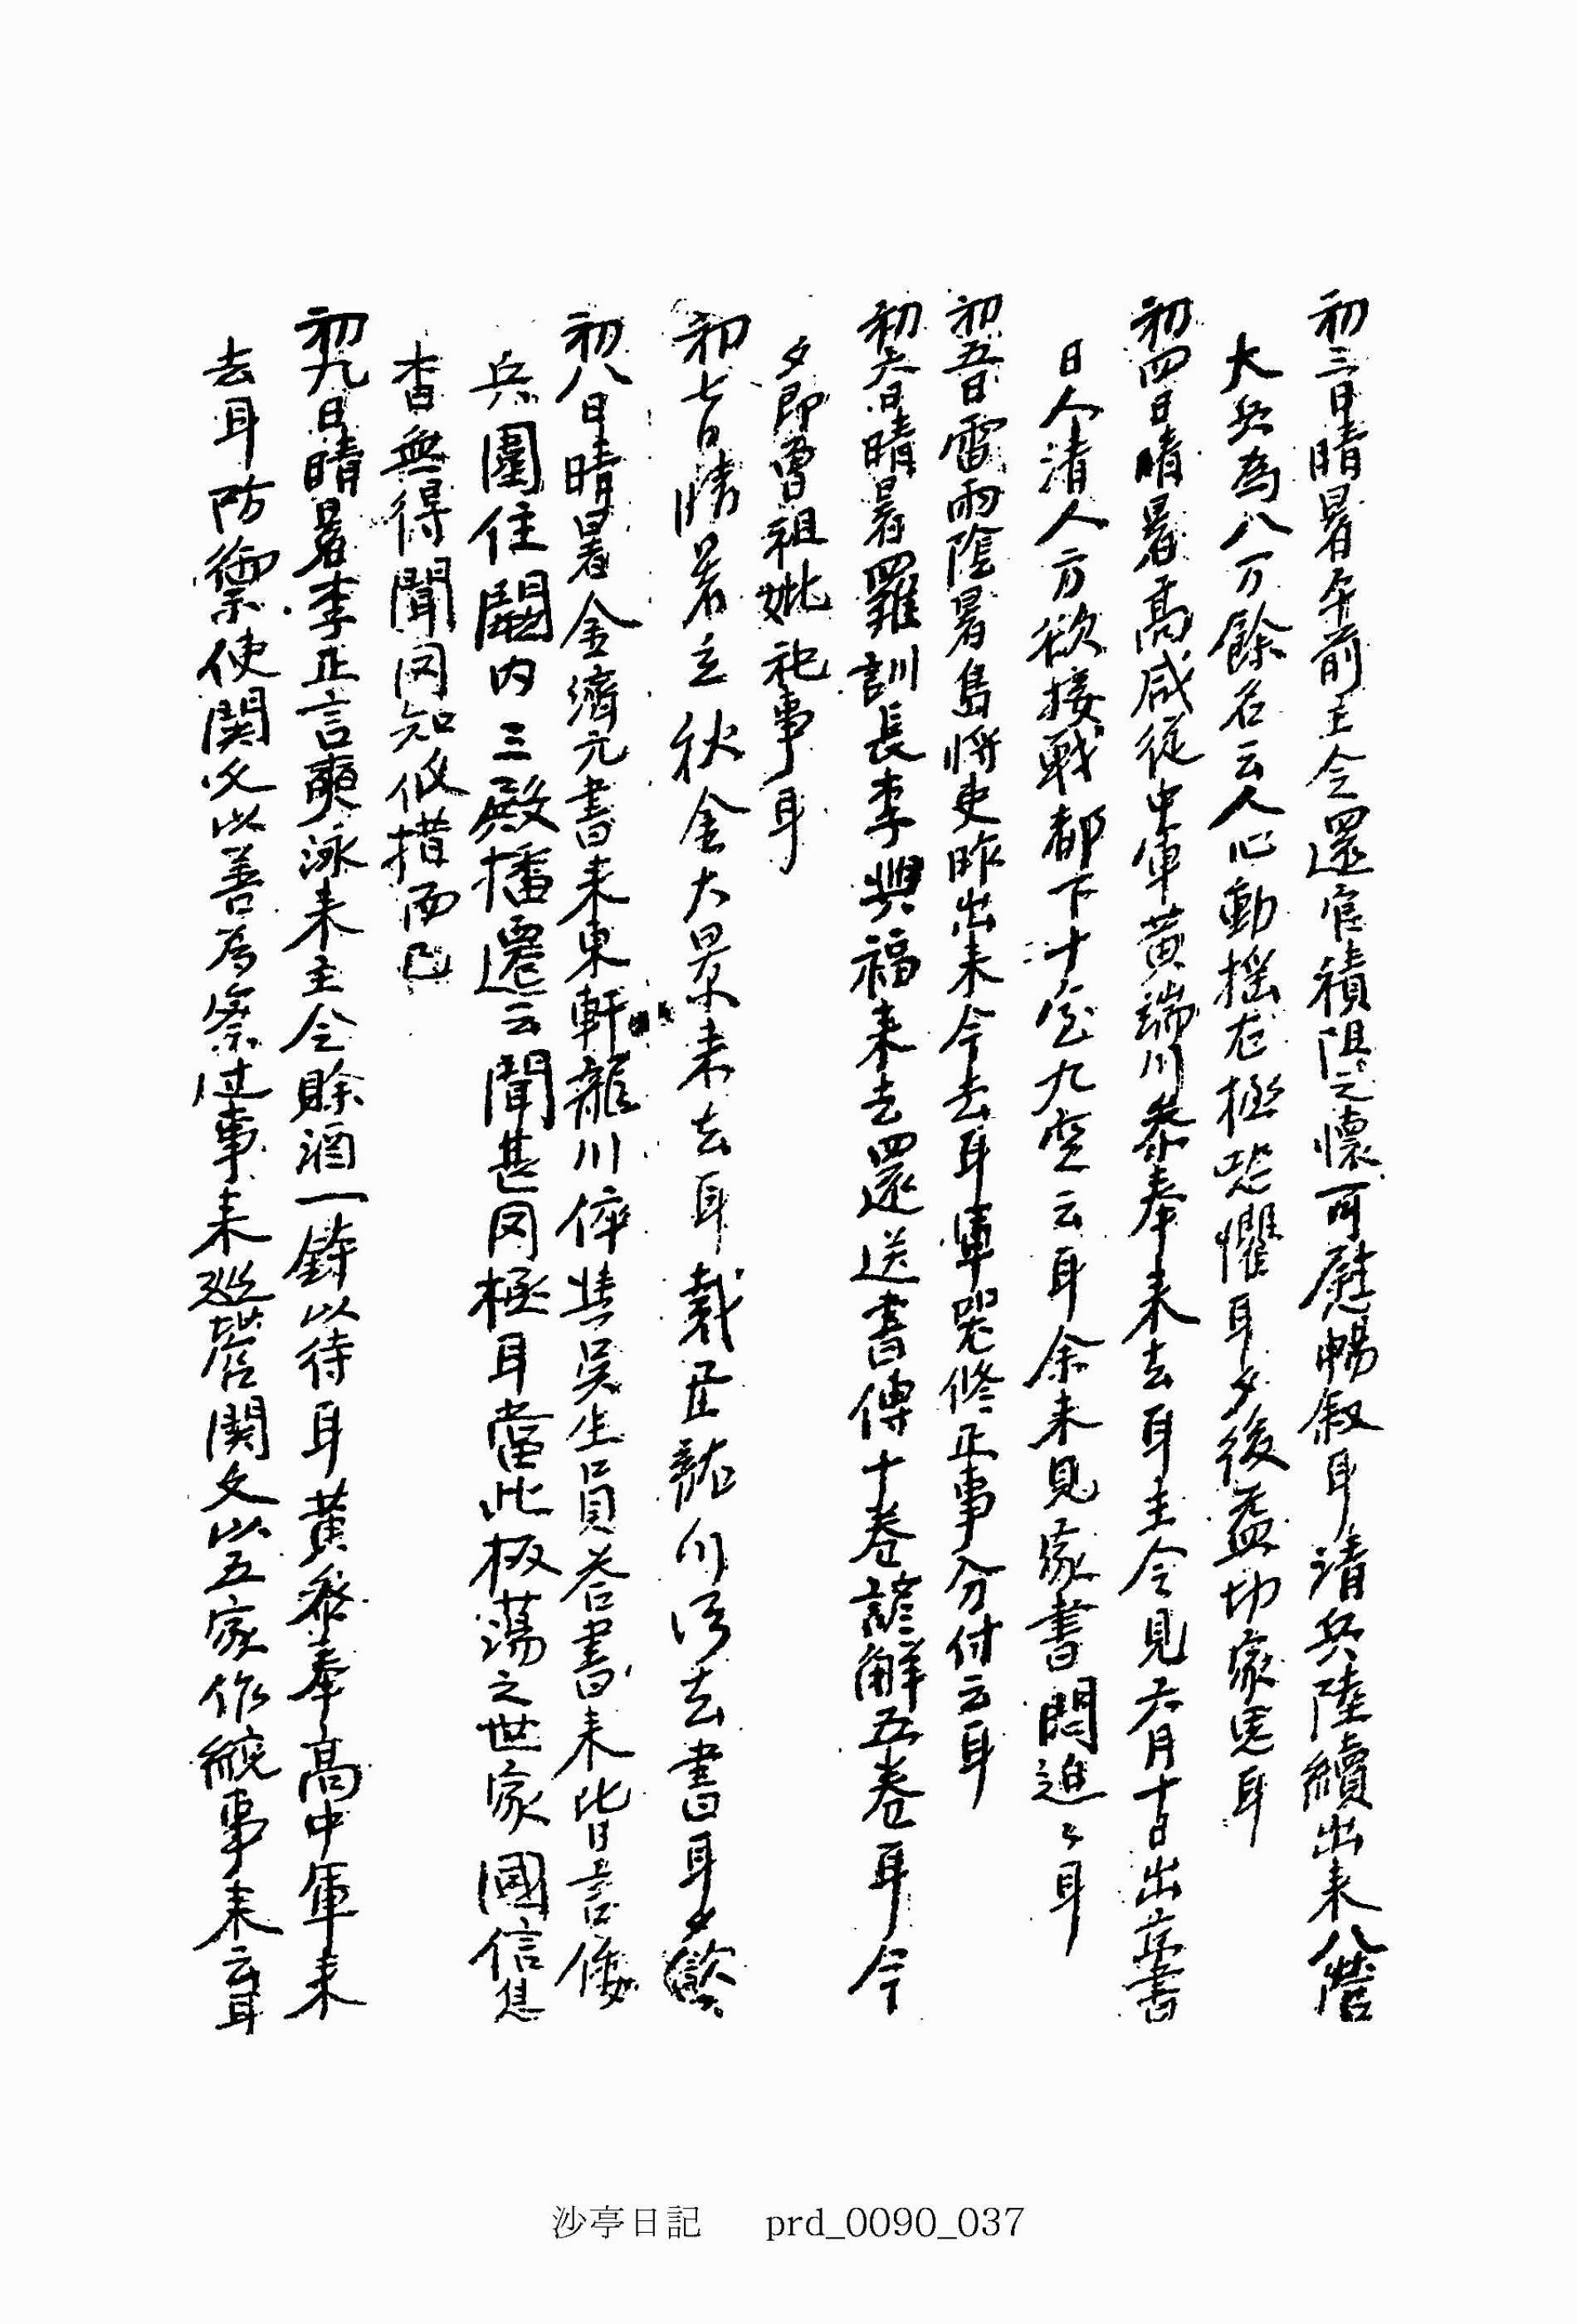 初三日晴暑午前主令還官積阻之懷可慰暢叙耳請兵陸續出來八營
大兵為八万餘名云人心動搖尤極恐懼耳夕後益切家思耳
初四日晴暑高咸從中軍黃端川參奉來去耳主令見六月十日出京書
日人清人方欲接戰都下十室九空云耳余未見家書悶迫々耳
初五日雷雨陰暑島將吏昨出來今去耳軍器修正事分付云耳
初六日晴暑羅訓長李興福來去還送書傳十卷諺解五卷耳今
夕即曾祖妣祀事耳
初七日晴暑立秋金大景來去耳裁正龍川渡去書耳夕
初八日晴暑金濟元書來東軒龍川倅與吳生員答書來皆言倭
兵圍住闕內三殿播遷云聞甚罔極耳當此板蕩之世家國信息
杳無得聞罔知攸措而已
初九日晴暑李正言奭泳來主令賒酒一鐏以待耳黃參奉高中軍來
去耳防禦使関文以善為察过事來巡營関文以五家作統事來云耳